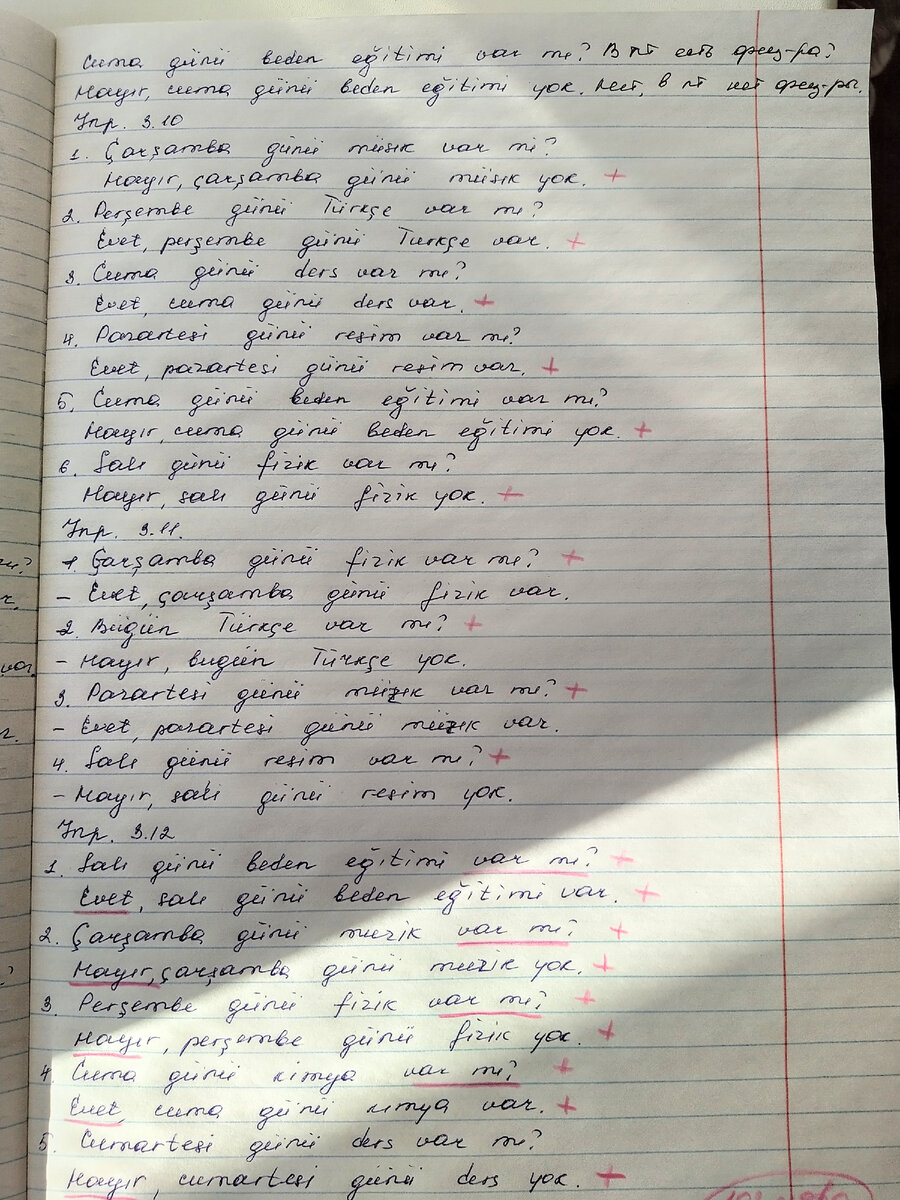 Cuma günü beden eğitimi var mı? В пт есть физ-ра?
Hayır, cuma günü beden eğitimi yok. Нет, в пт нет физ-ры.
Упр. 3.10
1. Çarşamba günü müsık var mı?
Hayır, çarşamba günü müsık yok. +
2. Perşembe günü Türkçe var mı?
Evet, perşembe günü Turkçe var. +
3. Cuma günü ders var mı?
Evet, cuma günü ders var. +
4. Pazartesi günü resim var mı?
Evet, pazartesi günü resim var. +
5. Cuma günü beden eğitimi var mı?
Hayır, cuma günü beden eğitimi yok. +
6. Salı günü fizik var mı?
Hayır, salı günü fizik yok. +
Упр. 3.11.
1. Çarşamba günü fizik var mı? +
- Evet, çarşamba günü fizik var.
2. Bugün Türkçe var mı? +
- Hayır, bugün Türkçe yok.
3. Pazartesi günü müzık var mı? +
- Evet, pazartesi günü müzık var.
4. Salı günü resim var mı? +
- Hayır, salı günü resim yok.
Упр. 3.12
1. Salı günü beden eğitimi var mı? +
Evet, salı günü beden eğitimi var. +
2. Çarşamba günü muzik var mı? +
Hayır, çarşamba günü muzik yok. +
3 Perşembe günü fizik var mı? +
Hayır, perşembe günü fizik yok. +
4. Cuma günü kimya var mı? +
Evet, cuma günü kımya var. +
5. Cumartesi günü ders var mı?
Hayır, cumartesi günü ders yok. +